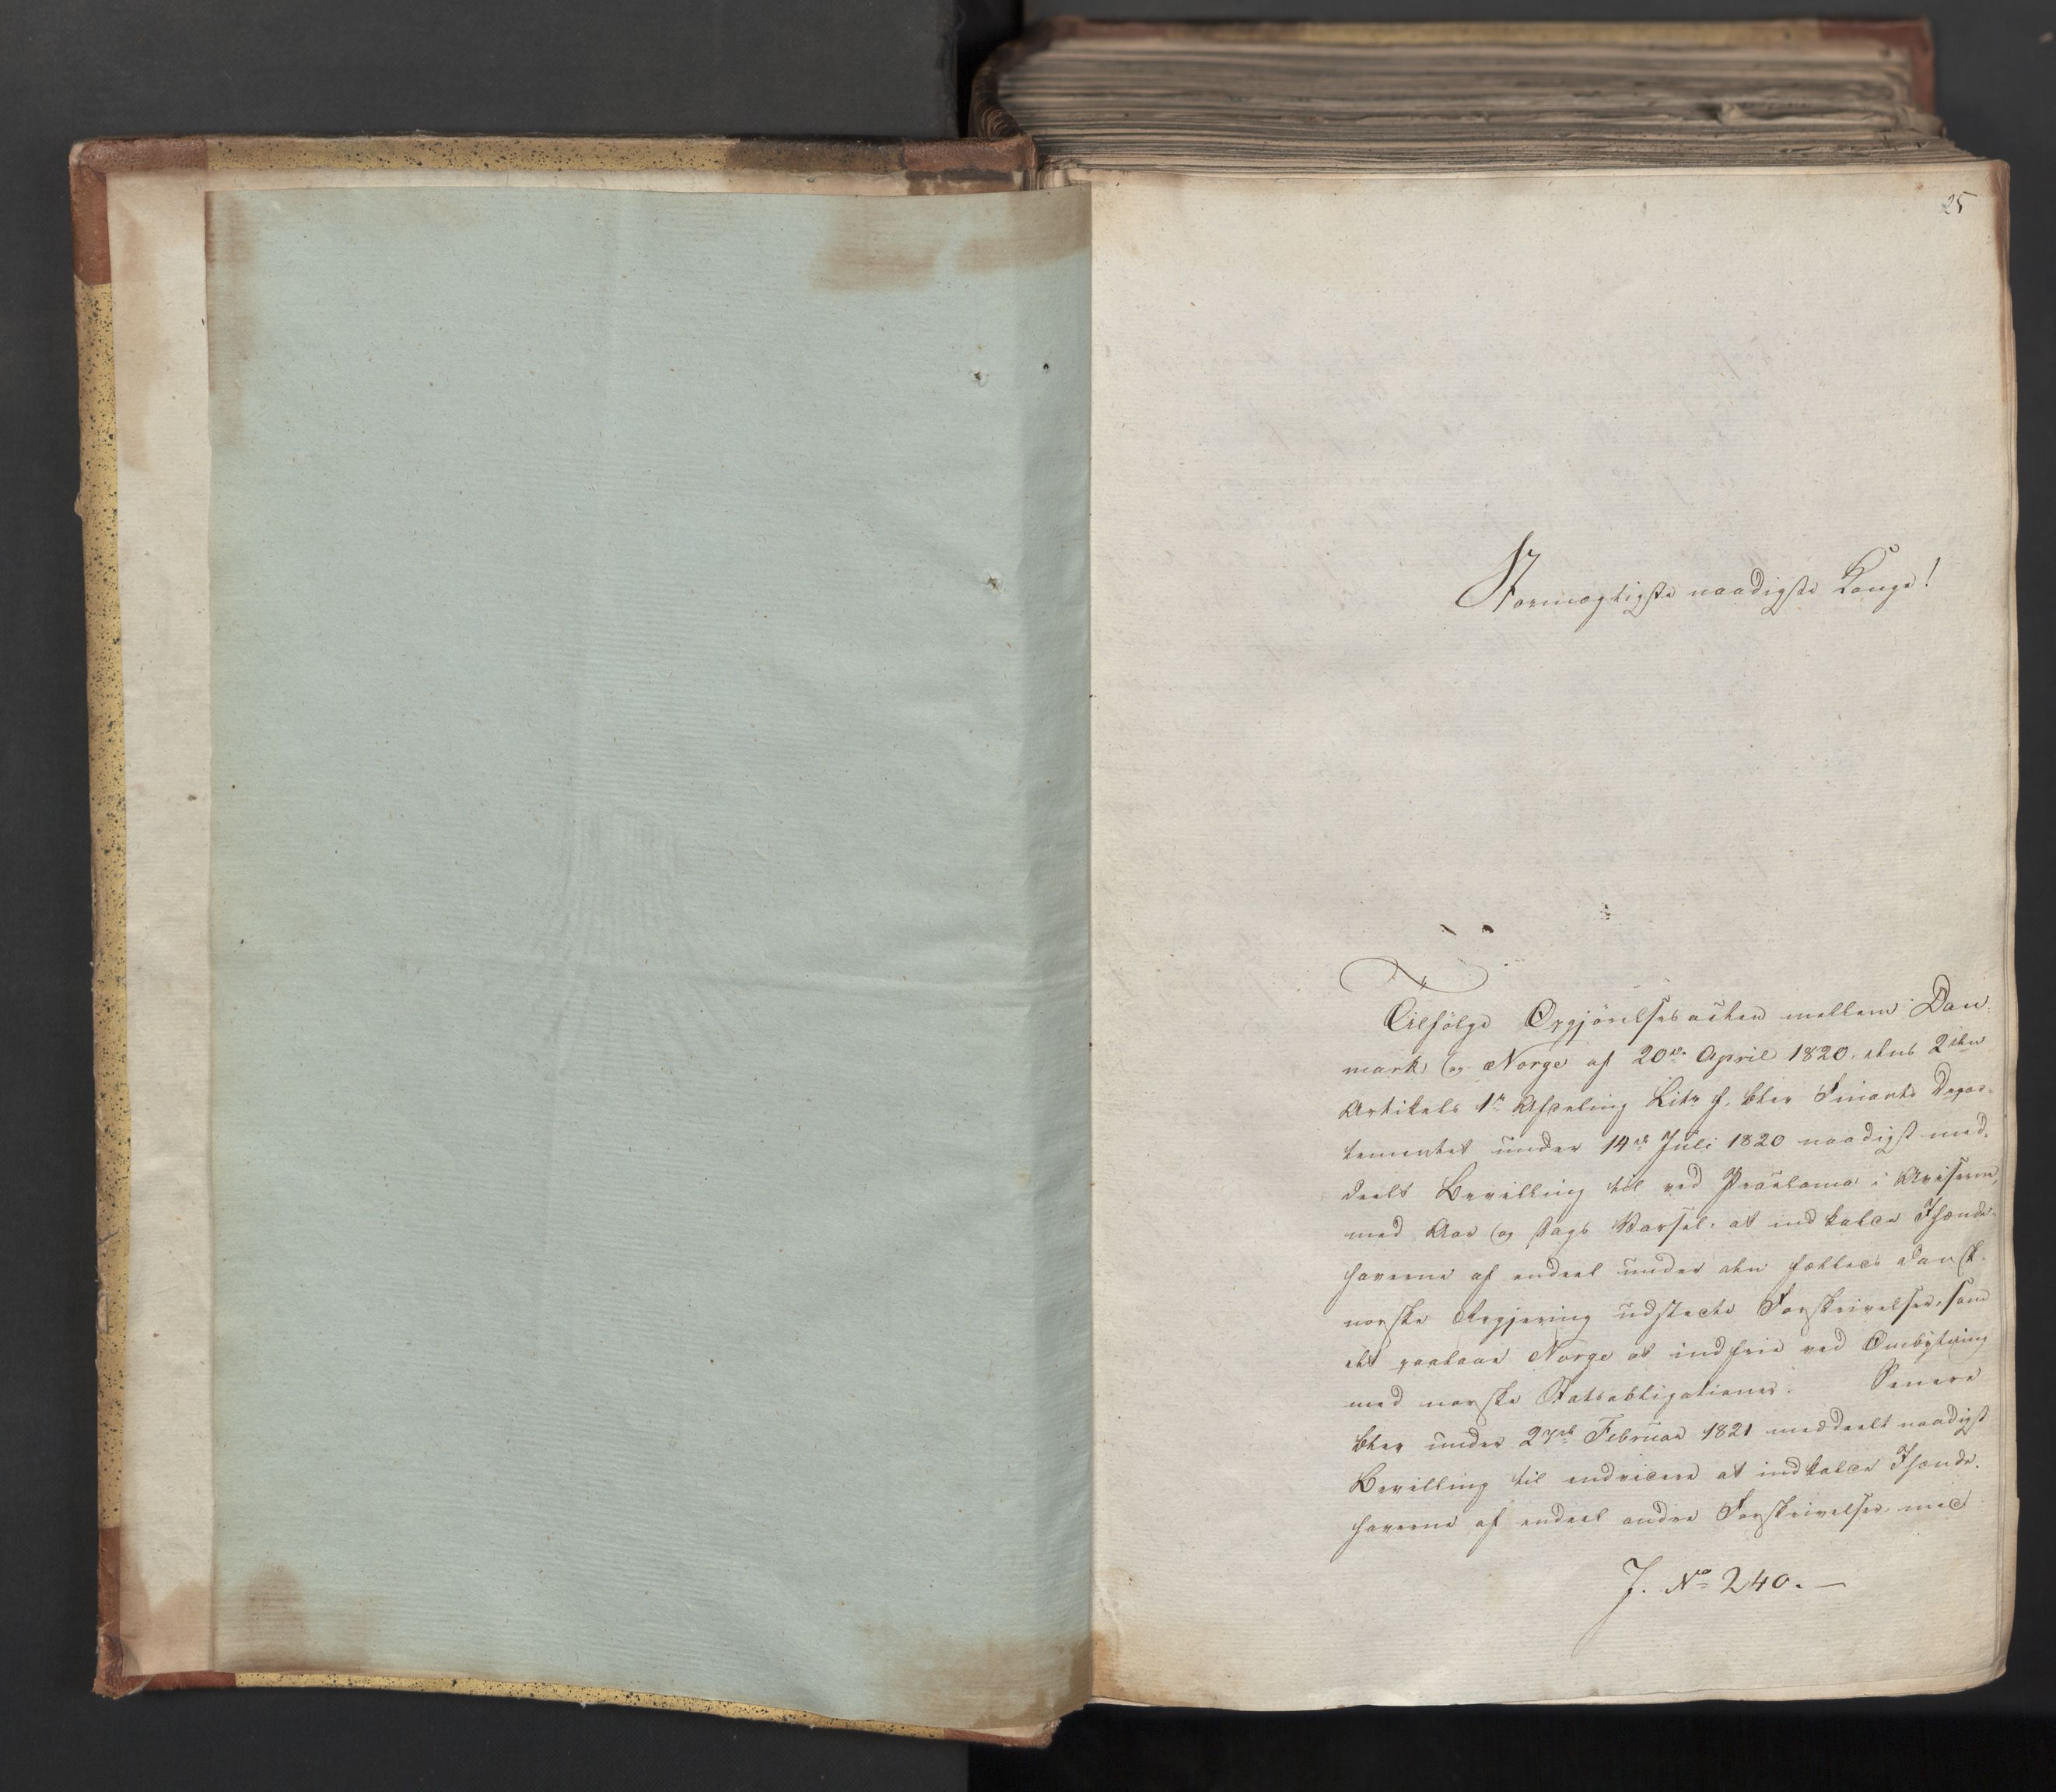 25
Stormægtigste naadigste Konge!
Tilfölge Opgjörelsesacten mellem Dan-
mark og Norge af 20de April 1820, dens 2den
Artikels 1te Afdeling Litr f. blev Finants Depar-
tementet under 14de Juli 1820 naadigst med-
deelt Bevilling til ved Proclama i Aviserne,
med Aar og Dags Varsel, at indkalde Ihænde-
haverne af endeel under den fælleds dansk-
norske Regjering udstedte Forskrivelser, som
det paalaae Norge at indfrie ved Ombytning
med norske Statsobligationer. Senere
blev under 27de Februar 1821 meddeelt naadigst
Bevilling til endvidere at indkalde Ihænde-
haverne af endeel andre Forskrivelser med
J. No 240. —